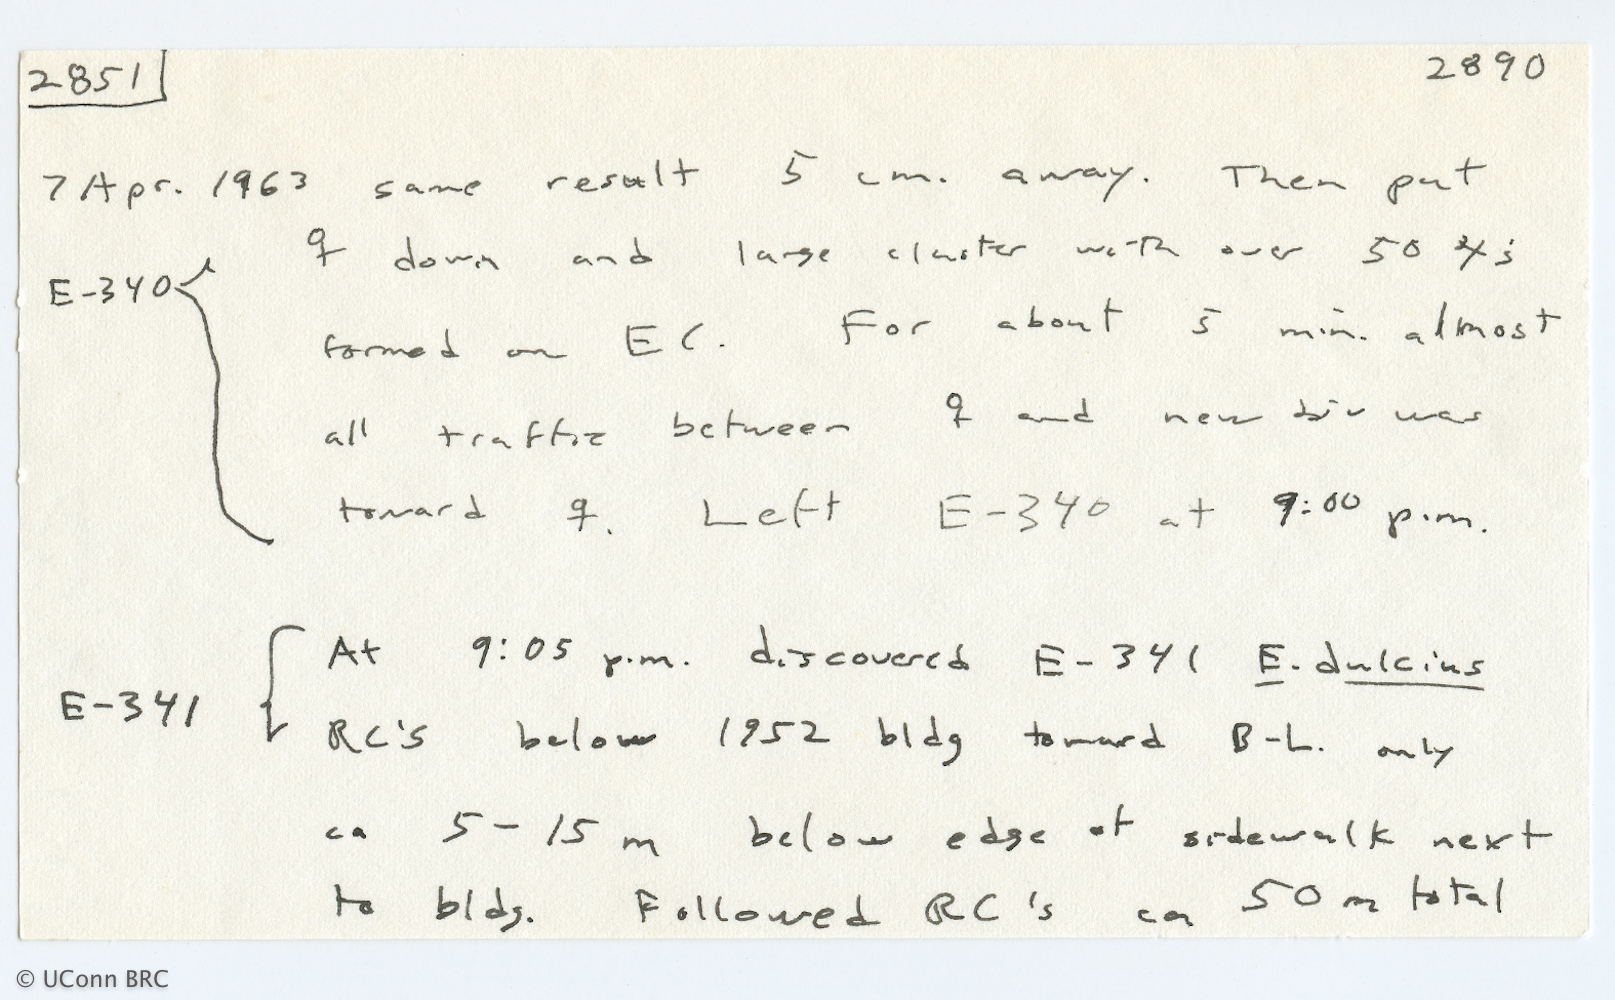 2851 2890
7 Apr. 1963 same result 5 cm. away. Then put
E-340 ♀ down and large cluster with over 50 ☿'s
formed on EC. For about 5 min. almost
all traffic between ♀ and new biv was
toward ♀. Left E-340 at 9:00 p.m.
At 9:05 p.m. discovered E-341 E. dulcius
E-341 RC's below 1952 bldg toward B-L. only
ca 5-15 m below edge of sidewalk next
to bldg. Followed RC's ca 50 m total
© UConn BRC